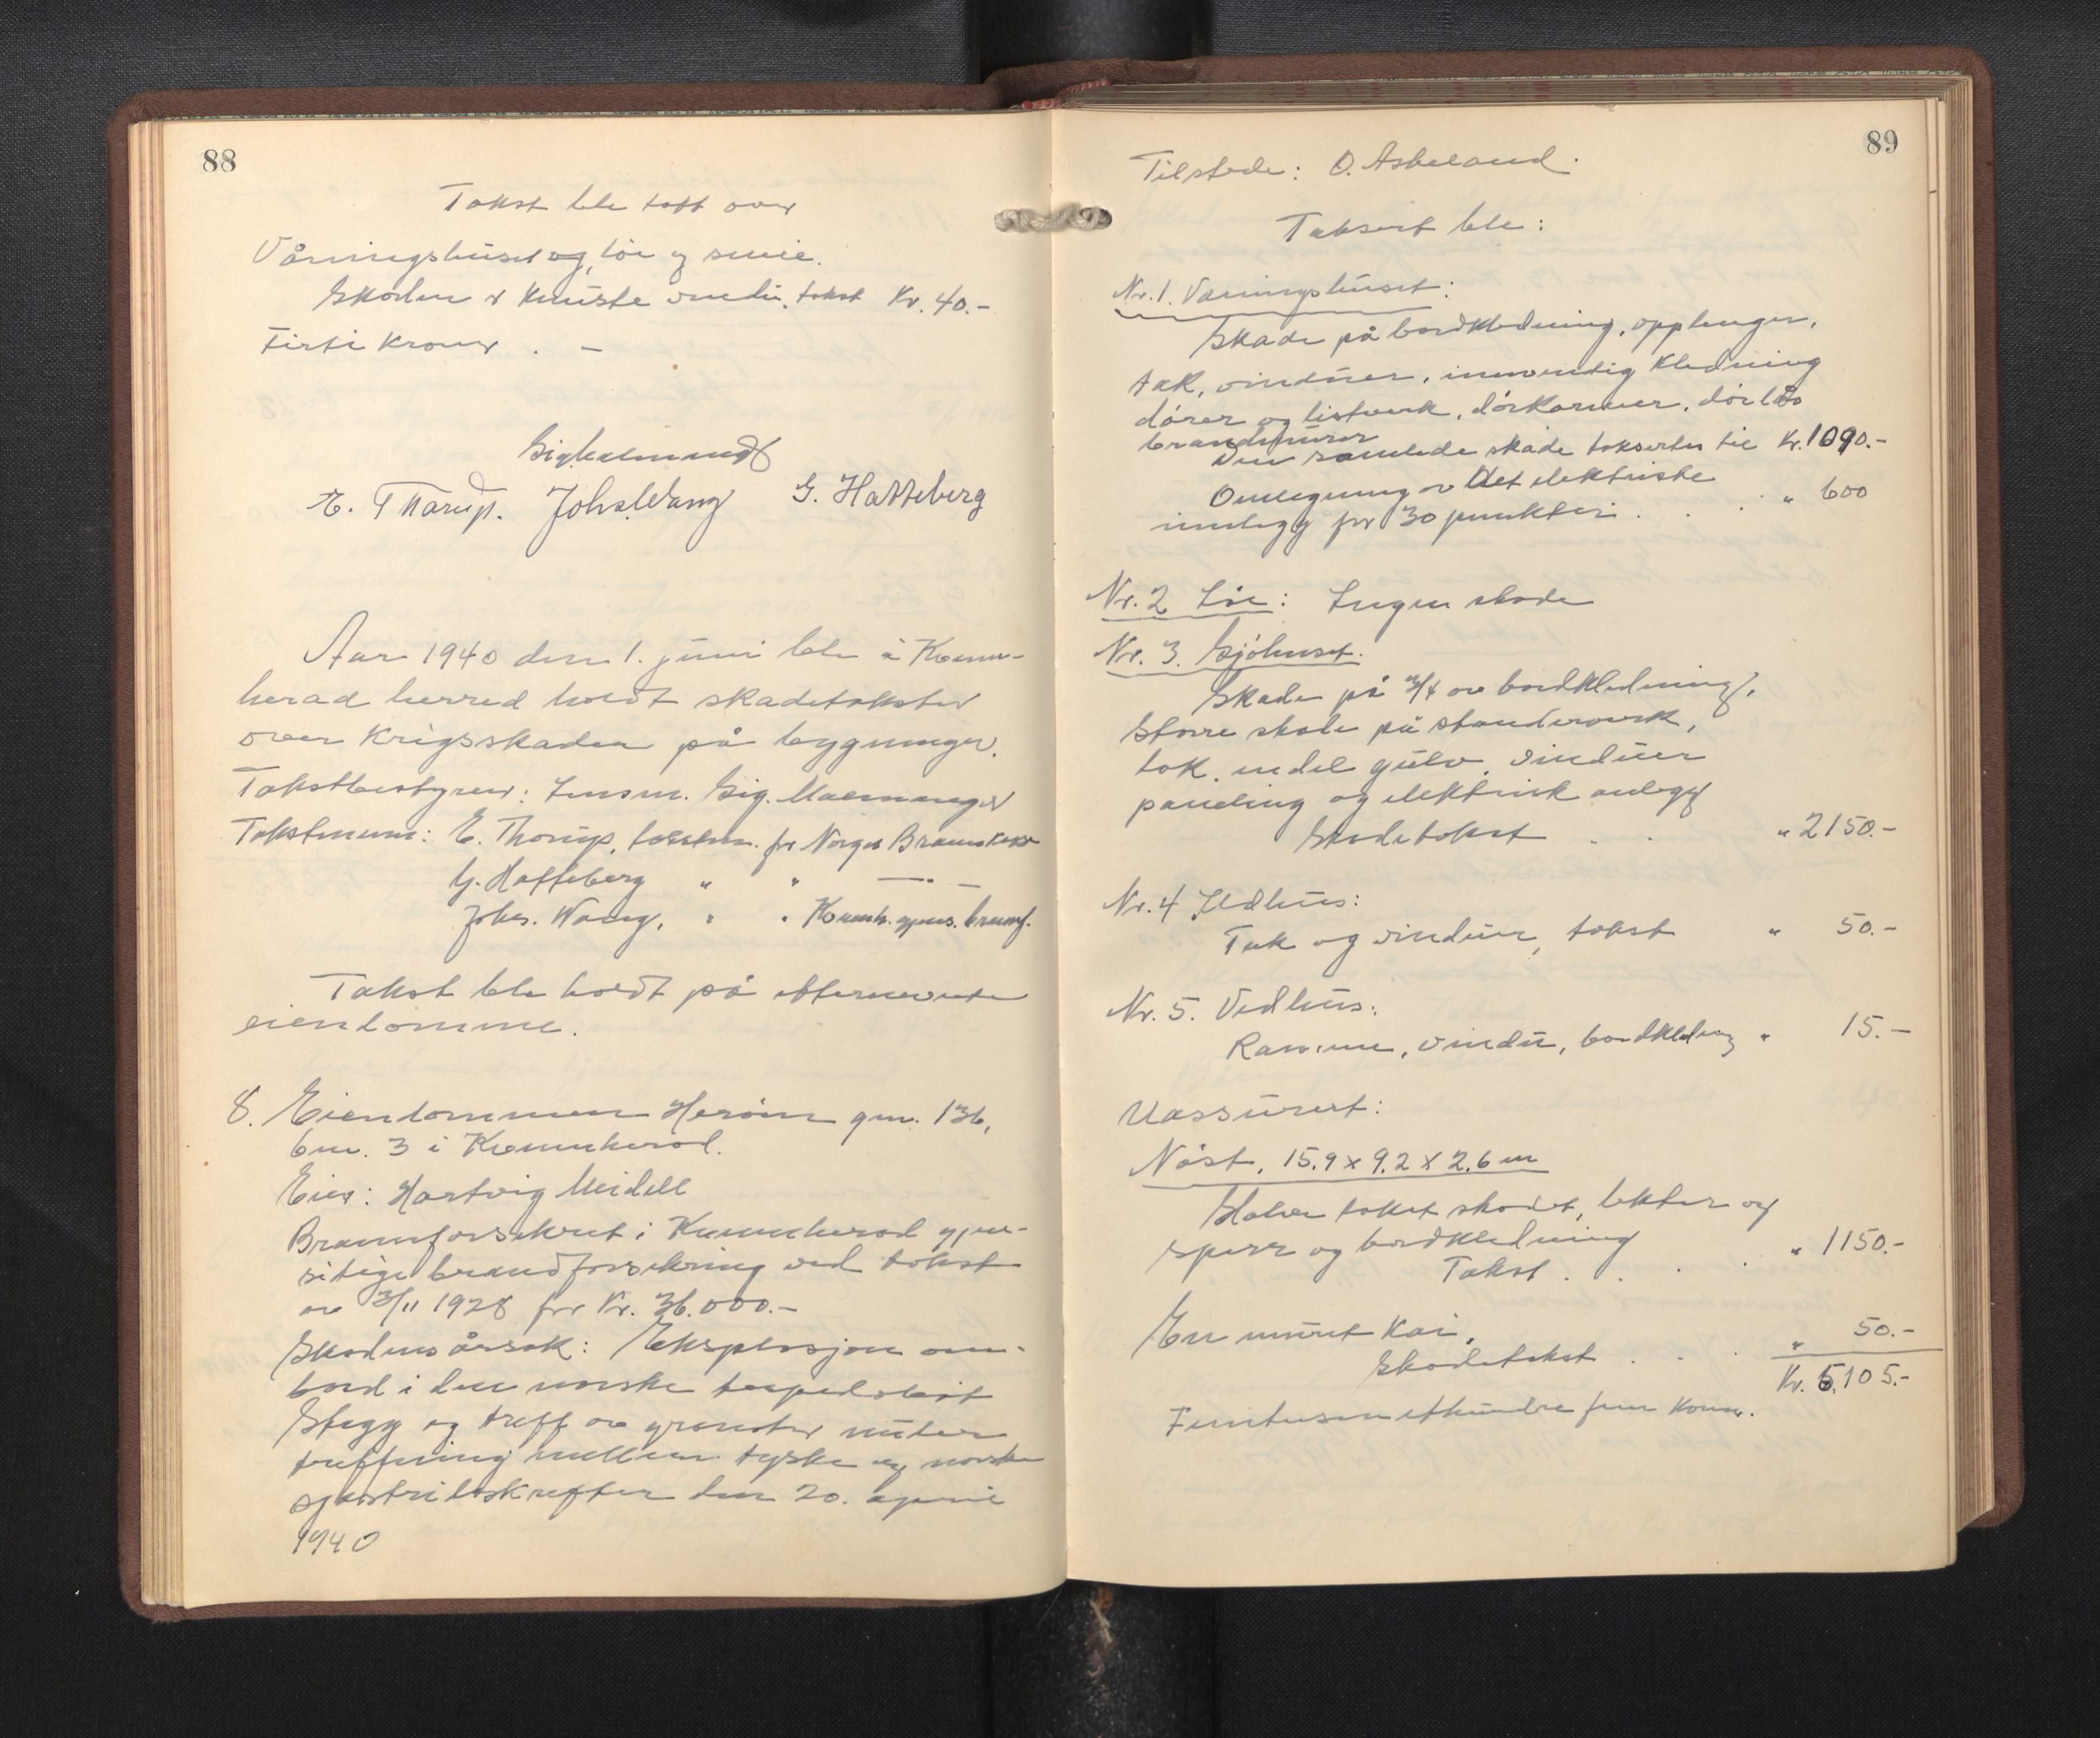 88
Takst ble tatt over
Våningshuset og, löe og smie.
Skaden er knuste vinduer, takst Kr. 40.-
Firti kroner . —
Sig. Malmanger
E. Thorup. Johs. Wang G. Hatteberg
Aar 1940 den 1. juni ble i Kvinn-
herad herred holdt skadetakster
over krigsskaden på bygninger.
Takstbestyrer: Lensm. Sig. Malmanger
Takstmenn: E. Thorup, takstm. for Norges Brannkasse
G. Hatteberg " " — " —
Johs. Wang, " " Kvinnh. gjens. brannf.
Takst ble holdt på efternevnte
eiendomme.
8. Eiendommen Herøen gnr. 136,
bnr. 3 i Kvinnherad.
Eier: Hartvig Meidell
Brannforsikret i Kvinnherad gjen-
sidige brandforsikring ved takst
av 3/11 1928 for Kr. 36.000.-
Skadens årsak: Eksplosjon om-
bord i den norske torpedobåt
Stegg og treff av granater under
treffning mellem tyske og norske
sjøstridskrefter den 20. april
1940
89
Tilstede: O. Askeland.
Taksert ble:
Nr. 1. Våningshuset:
Skade på bordkledning, opplenger,
tak, vinduer, innvendig kledning
dører og listverk, dørkarmer, dørlås
brandmurer
Den samlede skade taksertes til Kr. 1090.-
Omlegning av det elektriske
innlegg for 30 punkter . . . " 600
Nr. 2 Löe: Ingen skade
Nr. 3. Sjöhuset.
Skade på 3/4 av bordkledning,
Større skade på standerverk,
tak, endel gulv, vinduer
panding og elektrisk anlegg
Skadetakst . . " 2150.-
Nr. 4 Ildhus:
Tak og vinduer, takst " 50.-
Nr. 5. Vedhus:
Ramme, vindu, bordkledning " 15.-
Uassurert:
Nöst. 15.9 x 9.2 x 2.6 m
Halve taket skadet, lekter og
sperr og bordkledning
Takst . . . . " 1150.-
En muret kai,
Skadetakst . . . " 50.-
Kr. 5.105.-
Femtusenethundre fem kroner.